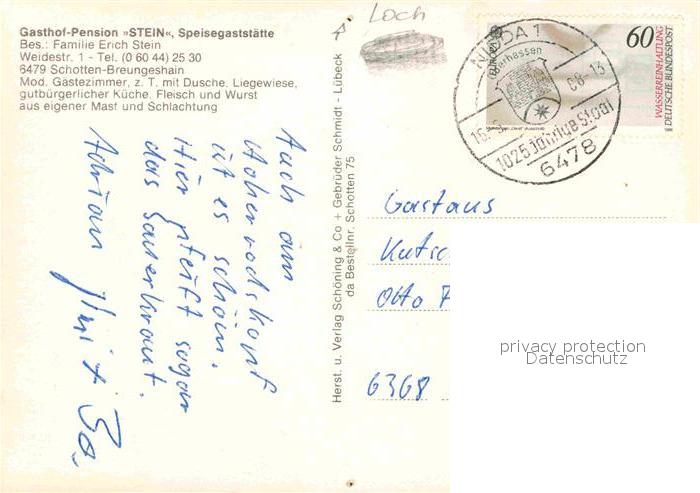 Gasthof-Pension »STEIN«, Speisegaststätte
Bes.: Familie Erich Stein
Weidestr. 1 - Tel. (0 60 44) 25 30
6479 Schotten-Breungeshain
Mod. Gästezimmer, z. T. mit Dusche, Liegewiese,
gutbürgerlicher Küche. Fleisch und Wurst
aus eigener Mast und Schlachtung
Auch am
Hoherodskopf
ist es schön.
Hier pfeift sogar
das Sauerkraut.
Herst. u. Verlag Schöning & Co + Gebrüder Schmidt - Lübeck
da Bestellnr. Schotten 75
Loch
NIDDA 1
08-13
1025 jährige Stadt
6478
60
WASSERREINHALTUNG
DEUTSCHE BUNDESPOST
Gastaus
Otto
6368
privacy protection
Datenschutz